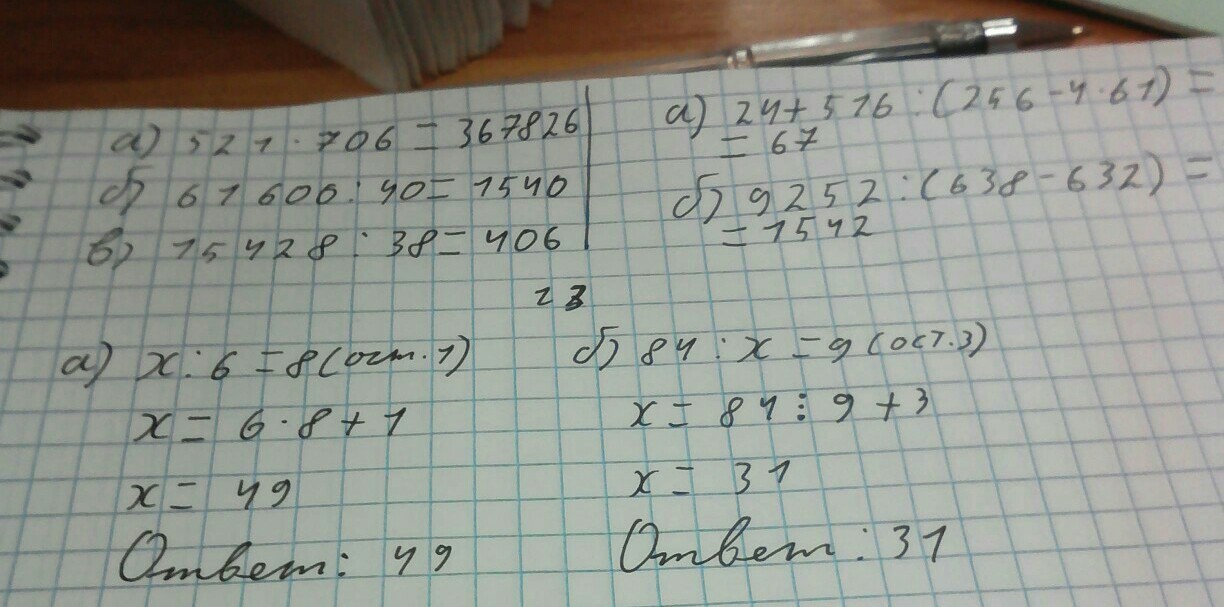 а) 521 · 706 = 367826
б) 61600 : 40 = 1540
в) 15428 : 38 = 406
а) 24 + 516 : (256 - 4 · 61) =
= 67
б) 9252 : (638 - 632) =
= 1542
23
а) x : 6 = 8 (ост. 1)
x = 6 · 8 + 1
x = 49
Ответ: 49
б) 84 : x = 9 (ост. 3)
x = 84 : 9 + 3
x = 31
Ответ: 31